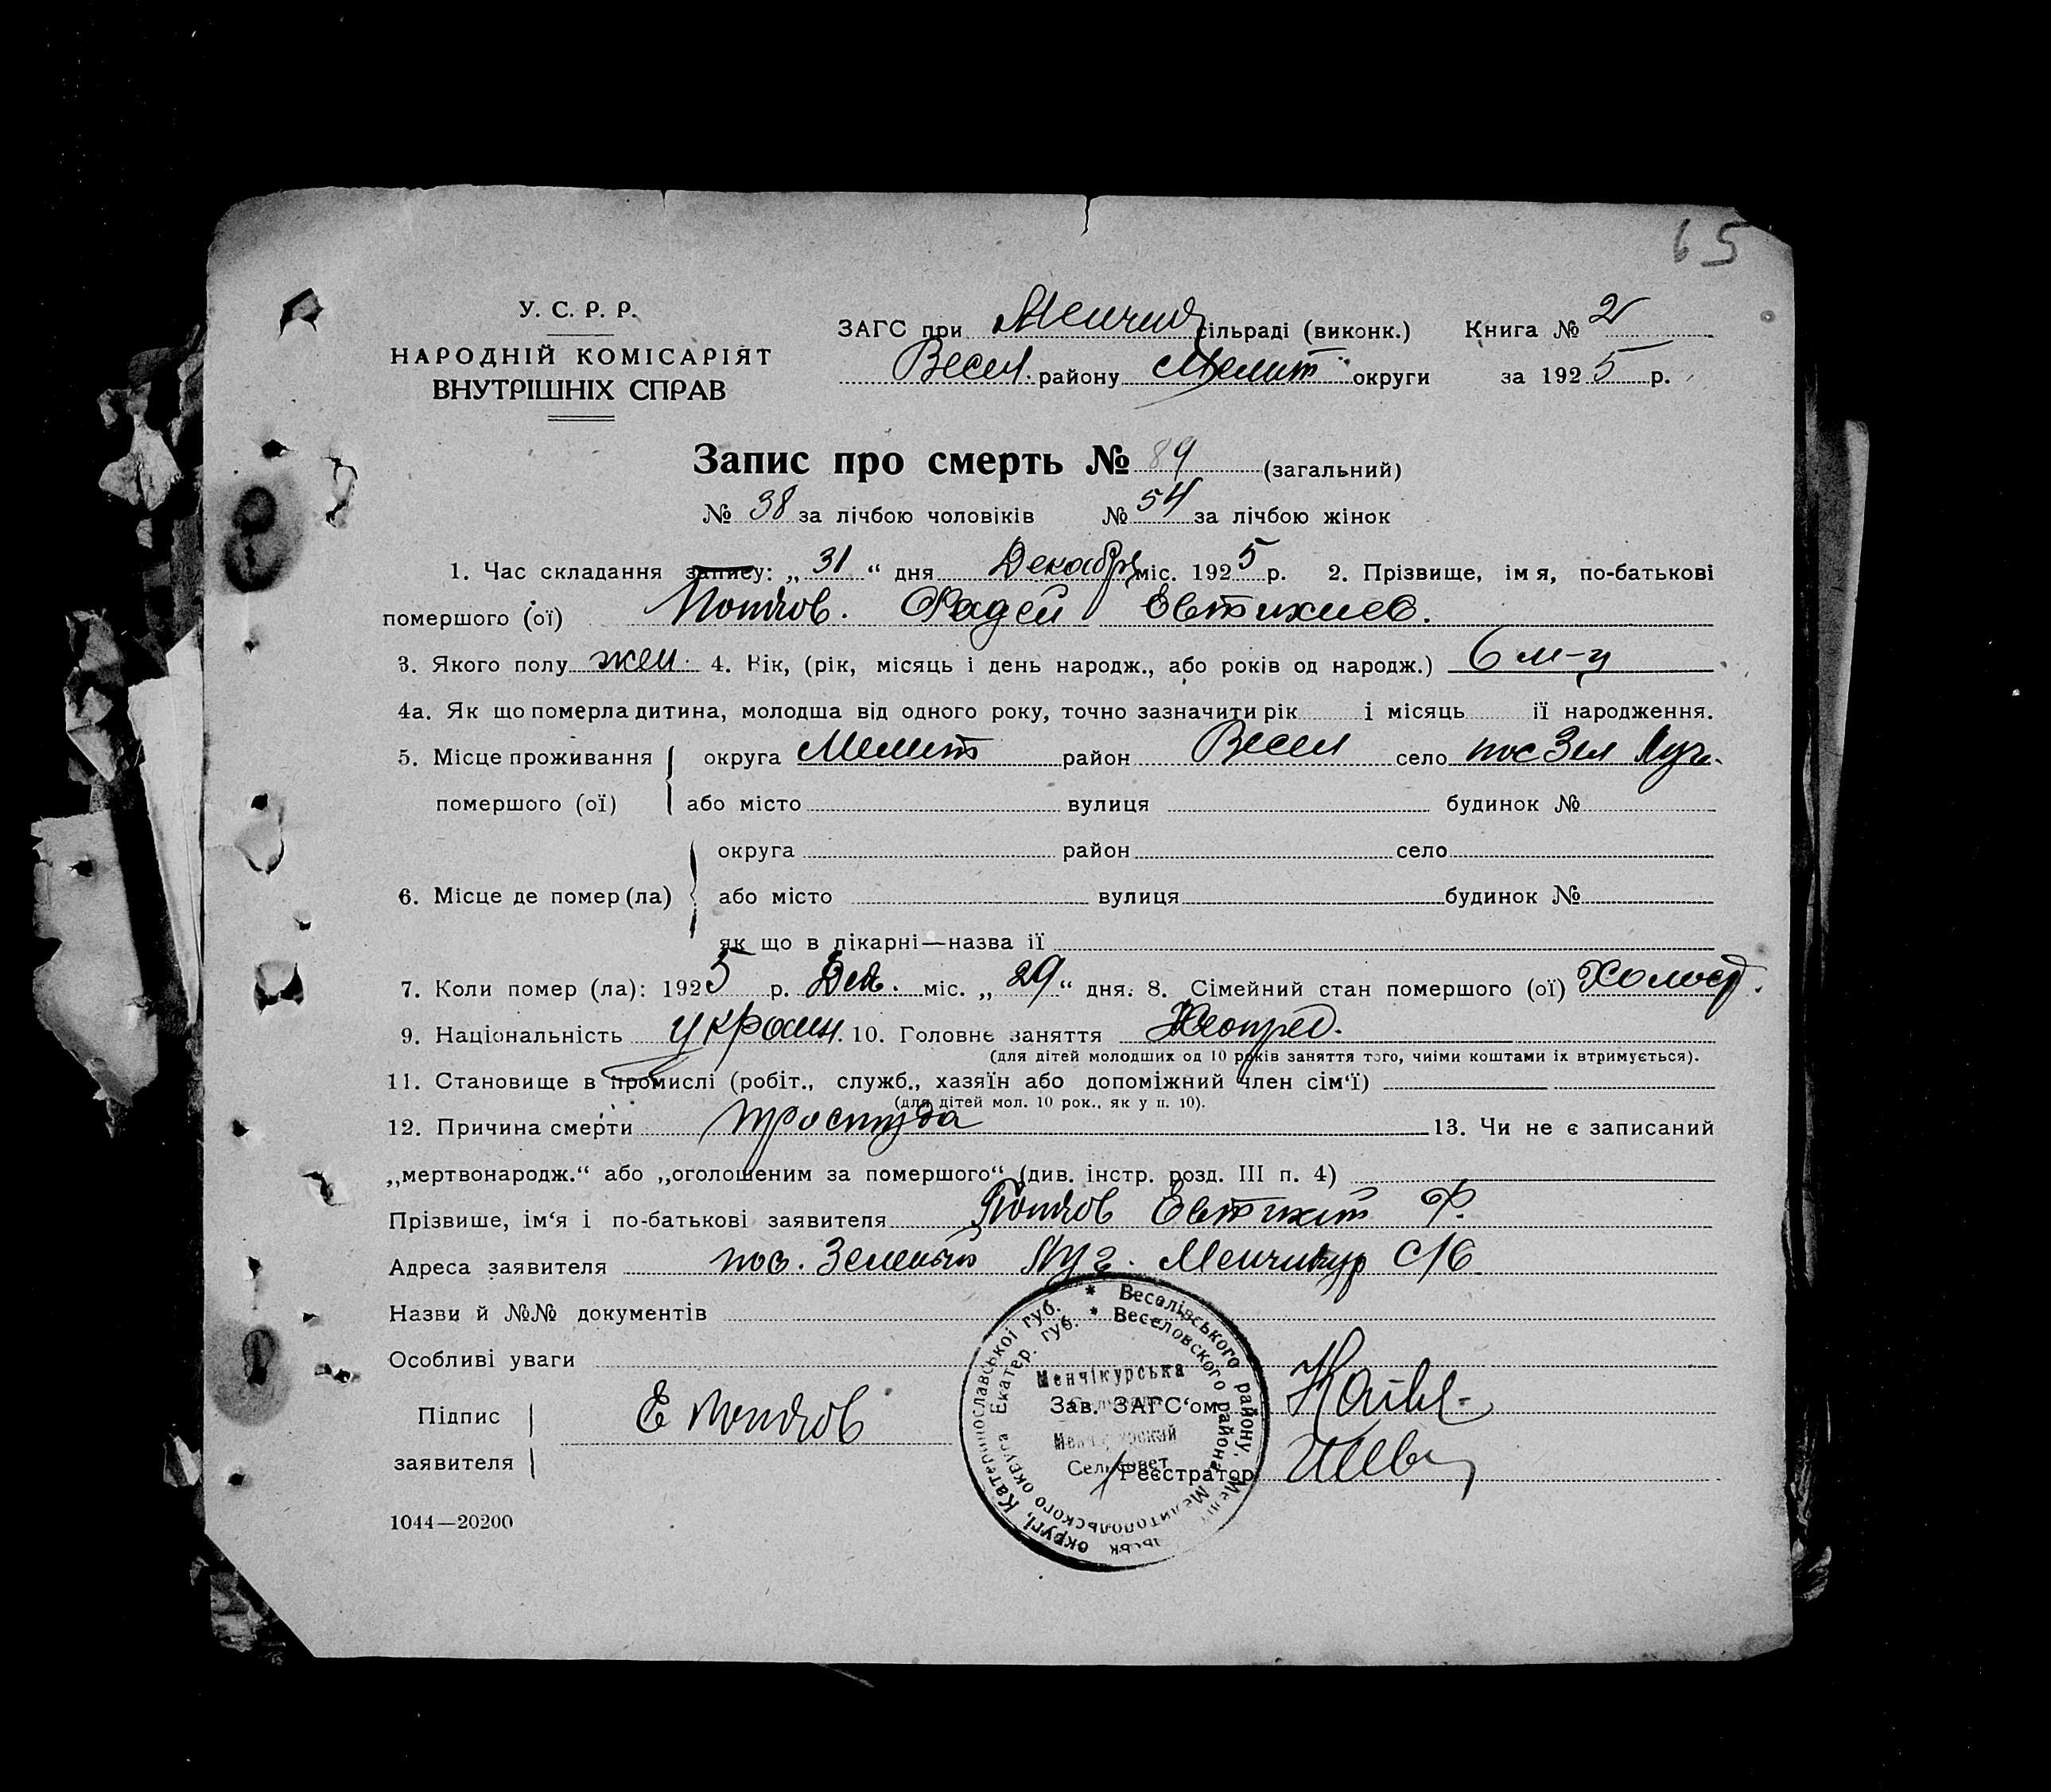 65
У. С. Р. Р.
НАРОДНІЙ КОМІСАРІЯТ
ВНУТРІШНІХ СПРАВ
ЗАГС при Менчик сільраді (виконк.) Книга № 2
Весел. району Мелит округи за 1925 р.
Запис про смерть № 89 (загальний)
№ 38 за лічбою чоловіків № 54 за лічбою жінок
1. Час складання запису: „31“ дня Декабря міс. 1925 р. 2. Прізвище, імя, по-батькові
помершого (ої) Фадей Евтихиев.
3. Якого полу жен. 4. Вік, (рік, місяць і день народж., або років од народж.) 6 м-ц
4а. Як що померла дитина, молодша від одного року, точно зазначити рік і місяць її народження.
5. Місце проживання округа Мелит район Весел село пос Зел Луг.
помершого (ої) або місто вулиця будинок №
округа район село
6. Місце де помер (ла) або місто вулиця будинок №
як що в лікарні—назва її
7. Коли помер (ла): 1925 р. Дек. міс. „29“ дня. 8. Сімейний стан помершого (ої) Холост.
9. Національність украин. 10. Головне заняття
(для дітей молодших од 10 років заняття того, чиїми коштами їх втримується).
11. Становище в промислі (робіт., служб., хазяїн або допоміжний член сім‘ї)
(для дітей мол. 10 рок., як у п. 10).
12. Причина смерти простуда 13. Чи не є записаний
„мертвонародж.“ або „оголошеним за помершого“ (див. інстр. розд. III п. 4)
Прізвише, ім‘я і по-батькові заявителя Евтихий Ф.
Адреса заявителя пос. Зеленый Луг. Менчикур С/С
Назви й №№ документів
Особливі уваги
Підпис
заявителя
Е
Зав. ЗАГС‘ом
Реєстратор
* Веселівського району, округі, Катеринославської губ.
* Веселовского района Мелитопольского округа Екатер. губ.
Менчікурська
Сельсовет
1044—20200